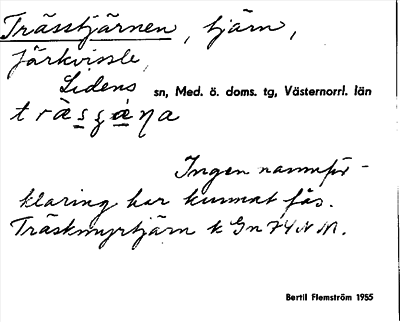 Trässtjärnen, tjärn,
Järkvissle,
Lidens sn, Med. ö. doms. tg, Västernorrl. län
Ingen namnför-
klaring har kunnat fås.
Träskmyrtjärn k Gn
Bertil Flemström 1955